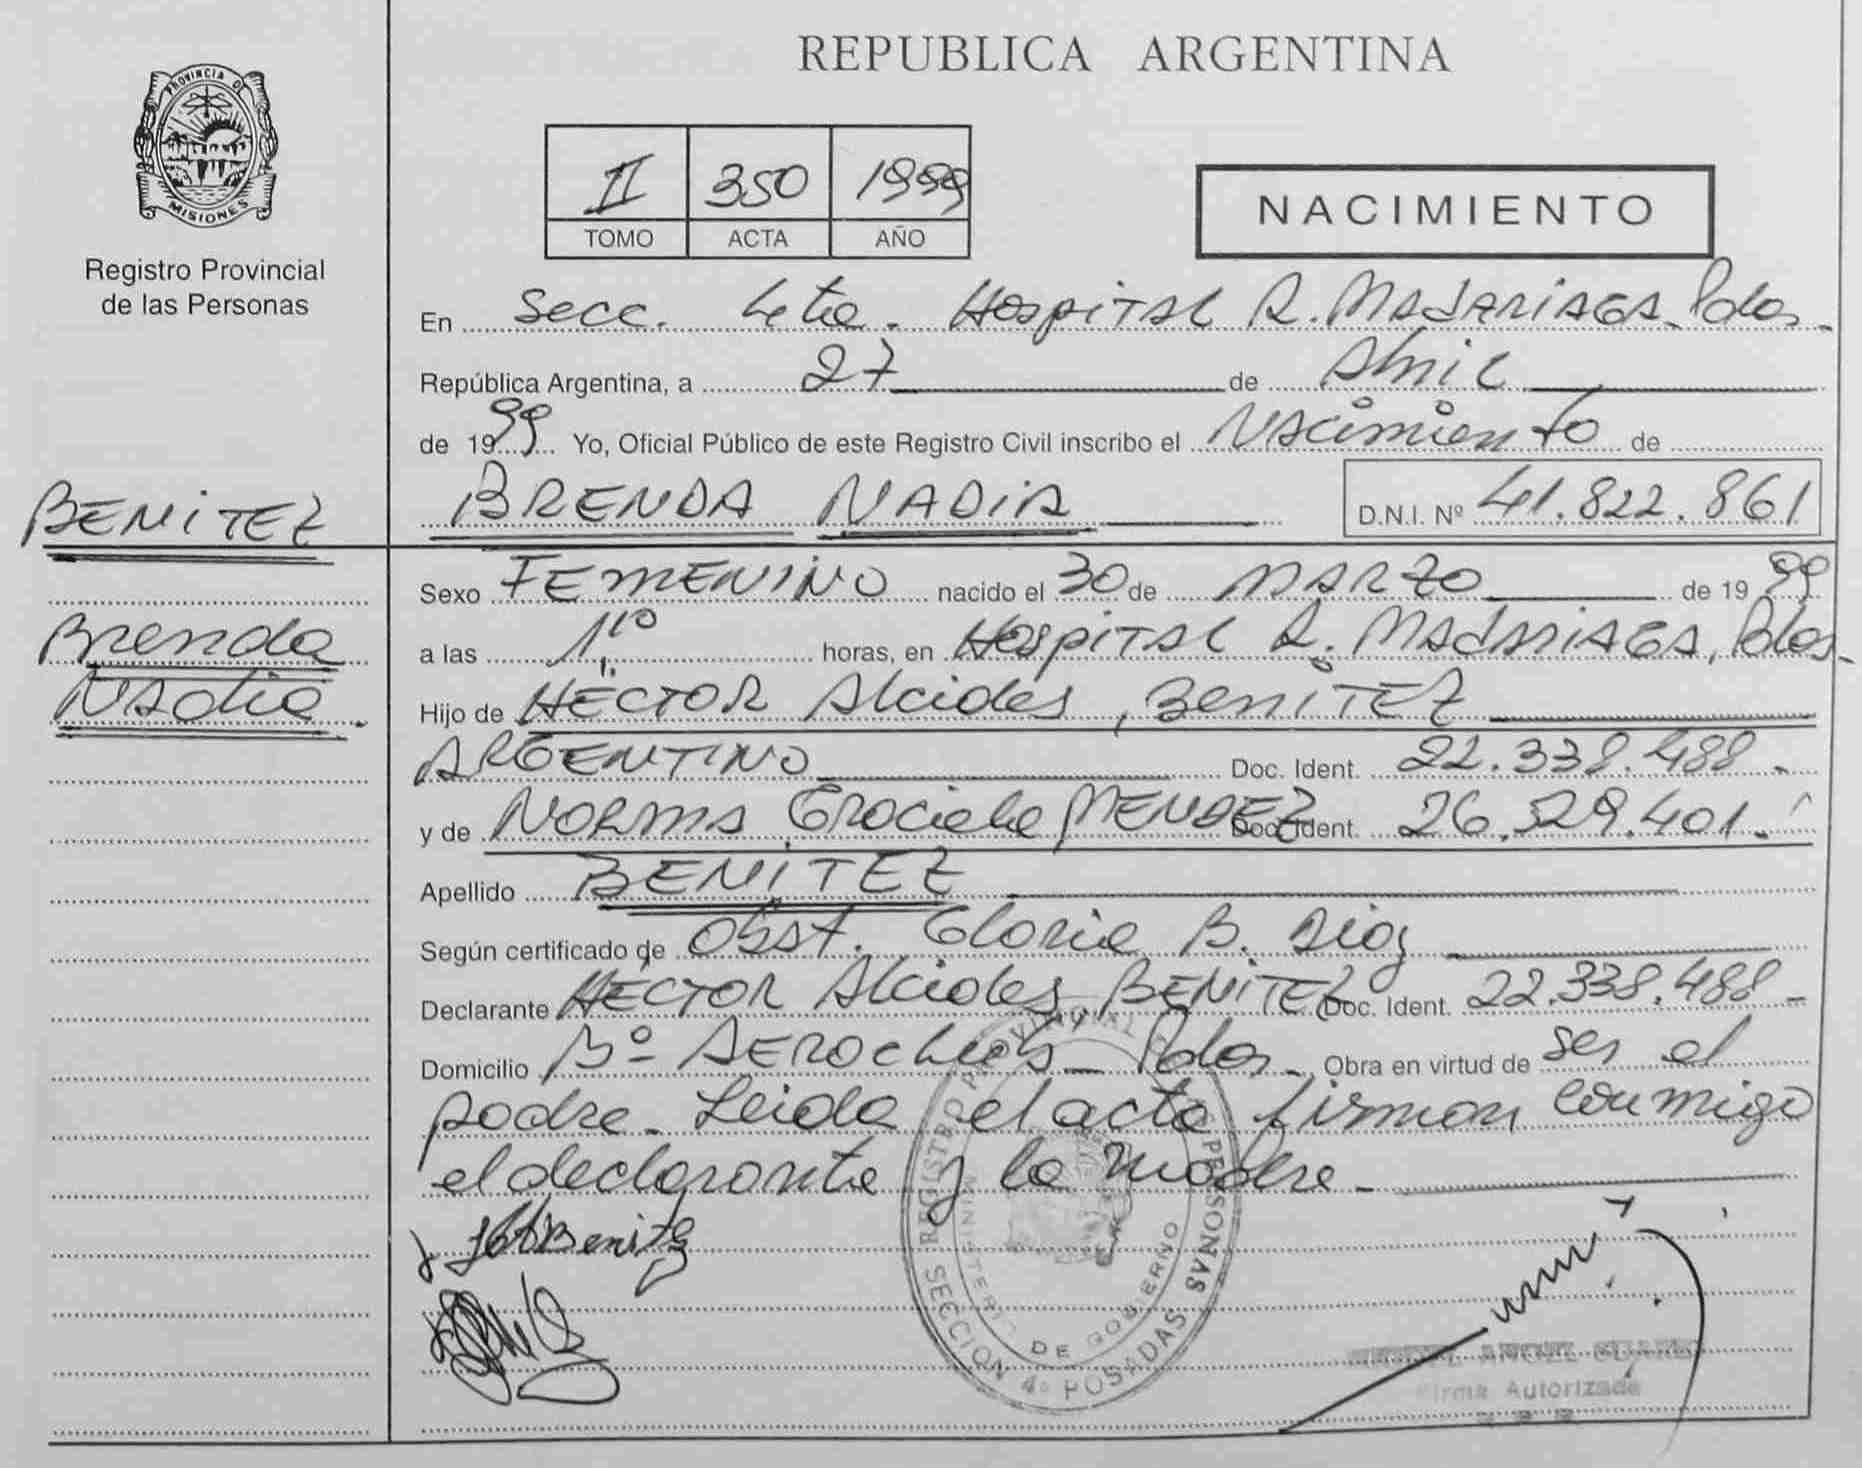 REPUBLICA ARGENTINA
PROVINCIA DE
MISIONES
Registro Provincial
de las Personas
II 350 1999
TOMO ACTA AÑO
NACIMIENTO
En Secc. 4ta. Hospital R. Madariaga. Pdas.
República Argentina, a 27 de Abril
de 1999 Yo, Oficial Público de este Registro Civil inscribo el Nacimiento de
BRENDA NADIA D.N.I. Nº 41.822.861
BENITEZ
Brenda
Nadia.
Sexo FEMENINO nacido el 30 de MARZO de 1999
a las horas, en Hospital R. Madariaga, Pdas.
Hijo de HÉCTOR Alcides, BENÍTEZ
ARGENTINO Doc. Ident. 22.338.488.
y de NORMA Graciela MENDEZ Doc. Ident. 26.529.401.
Apellido BENÍTEZ
Según certificado de Obst. Gloria B. Diaz
Declarante HÉCTOR Alcides, BENITEZ Doc. Ident. 22.338.488.
Domicilio Bº AEROclub - Pdas. Obra en virtud de ser el
padre. Leida el acta firman conmigo
el declarante y la madre.
Benitez
REGISTRO PROVINCIAL DE LAS PERSONAS
MINISTERIO DE GOBIERNO
SECCION 4º POSADAS
ANGEL
Firma Autorizada